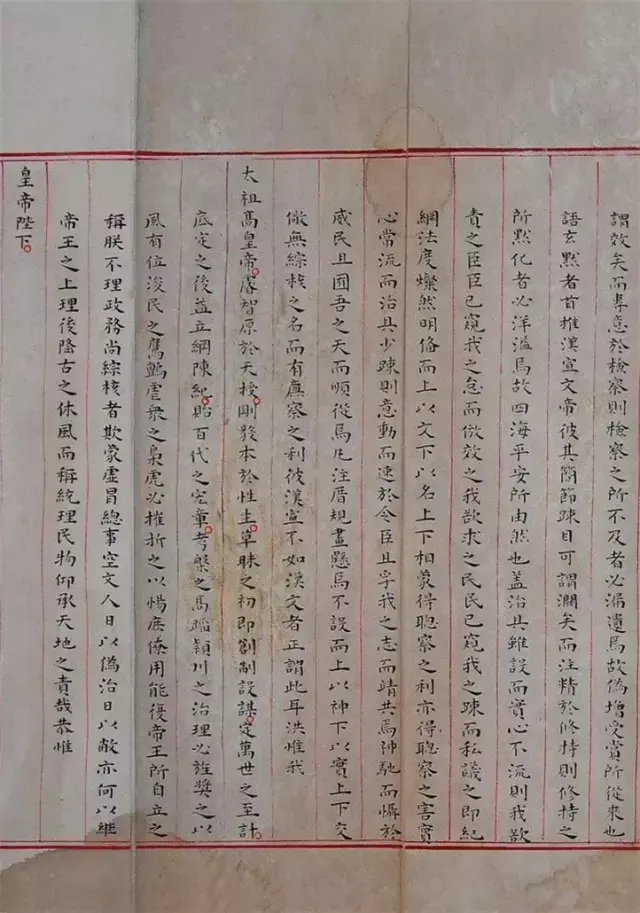 謂效矣而專意於檢察則檢察之所不及者必漏遺焉故偽增受賞所從來也
語玄黙者首推漢宣文帝彼其簡節踈目可謂濶矣而注精於修持則修持之
所黙化者必洋溢焉故四海平安所由然也盖治具雖設而實心不流則我欲
責之臣臣已窺我之怠而倣效之我欲求之民民已窺我之踈而私議之即紀
綱法度燦然明偹而上以文下以名上下相蒙得聦察之利亦得聦察之害實
心常流而治具少踈則意動而速於令臣且孚我之志而靖共焉神馳而懾於
威民且囿吾之天而順從焉凡注厝規畫懸焉不設而上以神下以實上下交
儆無綜核之名而有廉察之利彼漢宣不如漢文者正謂此耳洪惟我
太祖髙皇帝睿智原於天授剛毅本於性生草昧之初即創制設謀定萬世之至計
底定之後益立綱陳紀貽百代之宏章考槃之馬蹈頴川之治理必旌奬之以
風有位浚民之鷹鸇虐衆之梟虎必摧折之以惕庶僚用能復帝王所自立之
稱朕不理政務尚綜核者欺蒙虛冒總事空文人日以偽治日以敝亦何以継
帝王之上理後隆古之休風而稱統理民物仰承天地之責哉恭惟
皇帝陛下